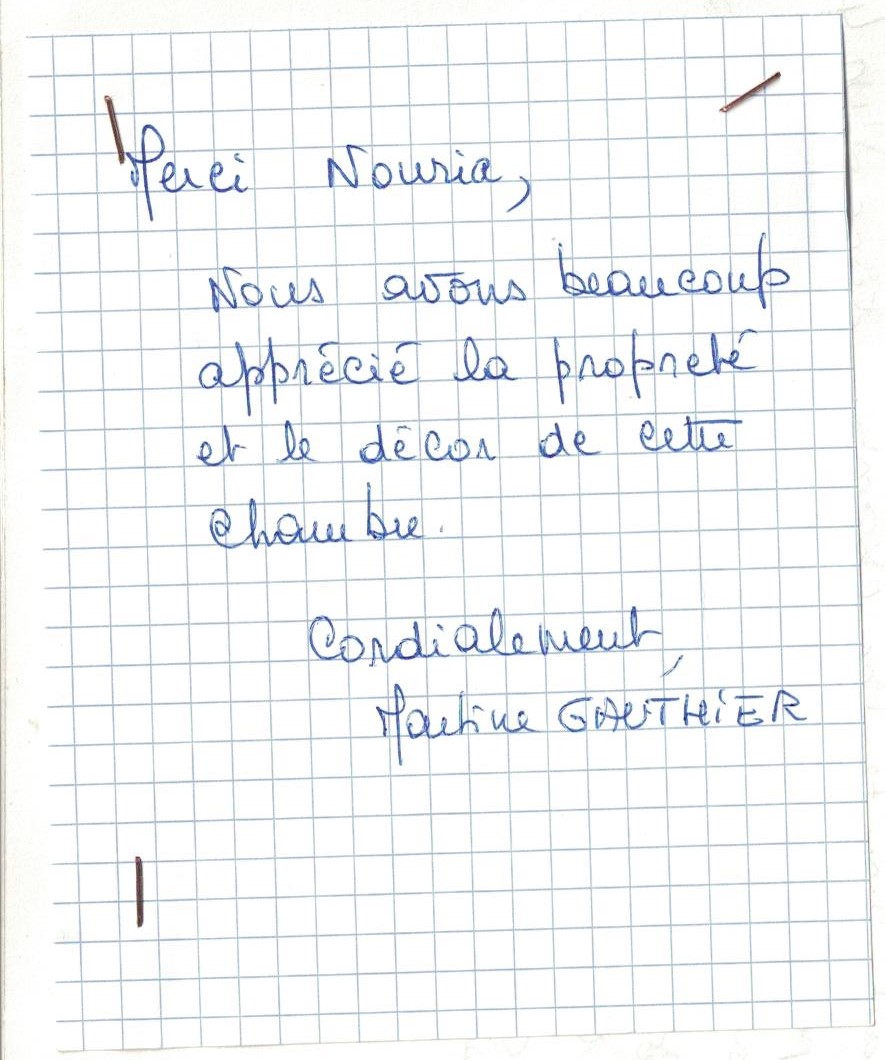 Merci Nouria,
Nous avons beaucoup
apprécié la propreté
et le décor de cette
chambre.
Cordialement,
Martine GAUTHiER